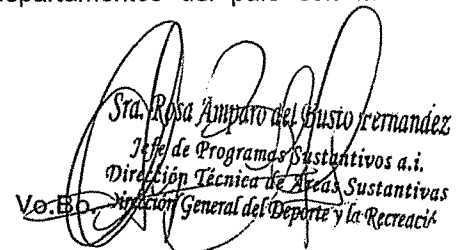 departamentos del país con
Sra. Rosa Amparo del Busto Fernandez
Jefe de Programas Sustantivos a.i.
Dirección Técnica de Areas Sustantivas
Vo.Bo. Dirección General del Deporte y la Recreació